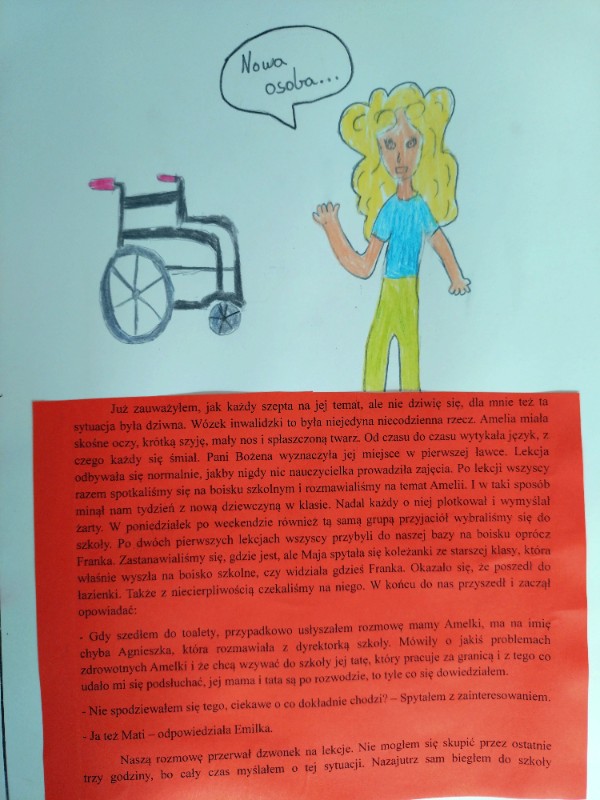 Nowa
osoba...
Już zauważyłem, jak każdy szepta na jej temat, ale nie dziwię się, dla mnie też ta
sytuacja była dziwna. Wózek inwalidzki to była niejedyna niecodzienna rzecz. Amelia miała
skośne oczy, krótką szyję, mały nos i spłaszczoną twarz. Od czasu do czasu wytykała język, z
czego każdy się śmiał. Pani Bożena wyznaczyła jej miejsce w pierwszej ławce. Lekcja
odbywała się normalnie, jakby nigdy nic nauczycielka prowadziła zajęcia. Po lekcji wszyscy
razem spotkaliśmy się na boisku szkolnym i rozmawialiśmy na temat Amelii. I w taki sposób
minął nam tydzień z nową dziewczyną w klasie. Nadal każdy o niej plotkował i wymyślał
żarty. W poniedziałek po weekendzie również tą samą grupą przyjaciół wybraliśmy się do
szkoły. Po dwóch pierwszych lekcjach wszyscy przybyli do naszej bazy na boisku oprócz
Franka. Zastanawialiśmy się, gdzie jest, ale Maja spytała się koleżanki ze starszej klasy, która
właśnie wyszła na boisko szkolne, czy widziała gdzieś Franka. Okazało się, że poszedł do
łazienki. Także z niecierpliwością czekaliśmy na niego. W końcu do nas przyszedł i zaczął
opowiadać:
- Gdy szedłem do toalety, przypadkowo usłyszałem rozmowę mamy Amelki, ma na imię
chyba Agnieszka, która rozmawiała z dyrektorką szkoły. Mówiły o jakiś problemach
zdrowotnych Amelki i że chcą wzywać do szkoły jej tatę, który pracuje za granicą i z tego co
udało mi się podsłuchać, jej mama i tata są po rozwodzie, to tyle co się dowiedziałem.
- Nie spodziewałem się tego, ciekawe o co dokładnie chodzi? – Spytałem z zainteresowaniem.
- Ja też Mati – odpowiedziała Emilka.
Naszą rozmowę przerwał dzwonek na lekcje. Nie mogłem się skupić przez ostatnie
trzy godziny, bo cały czas myślałem o tej sytuacji. Nazajutrz sam biegłem do szkoły